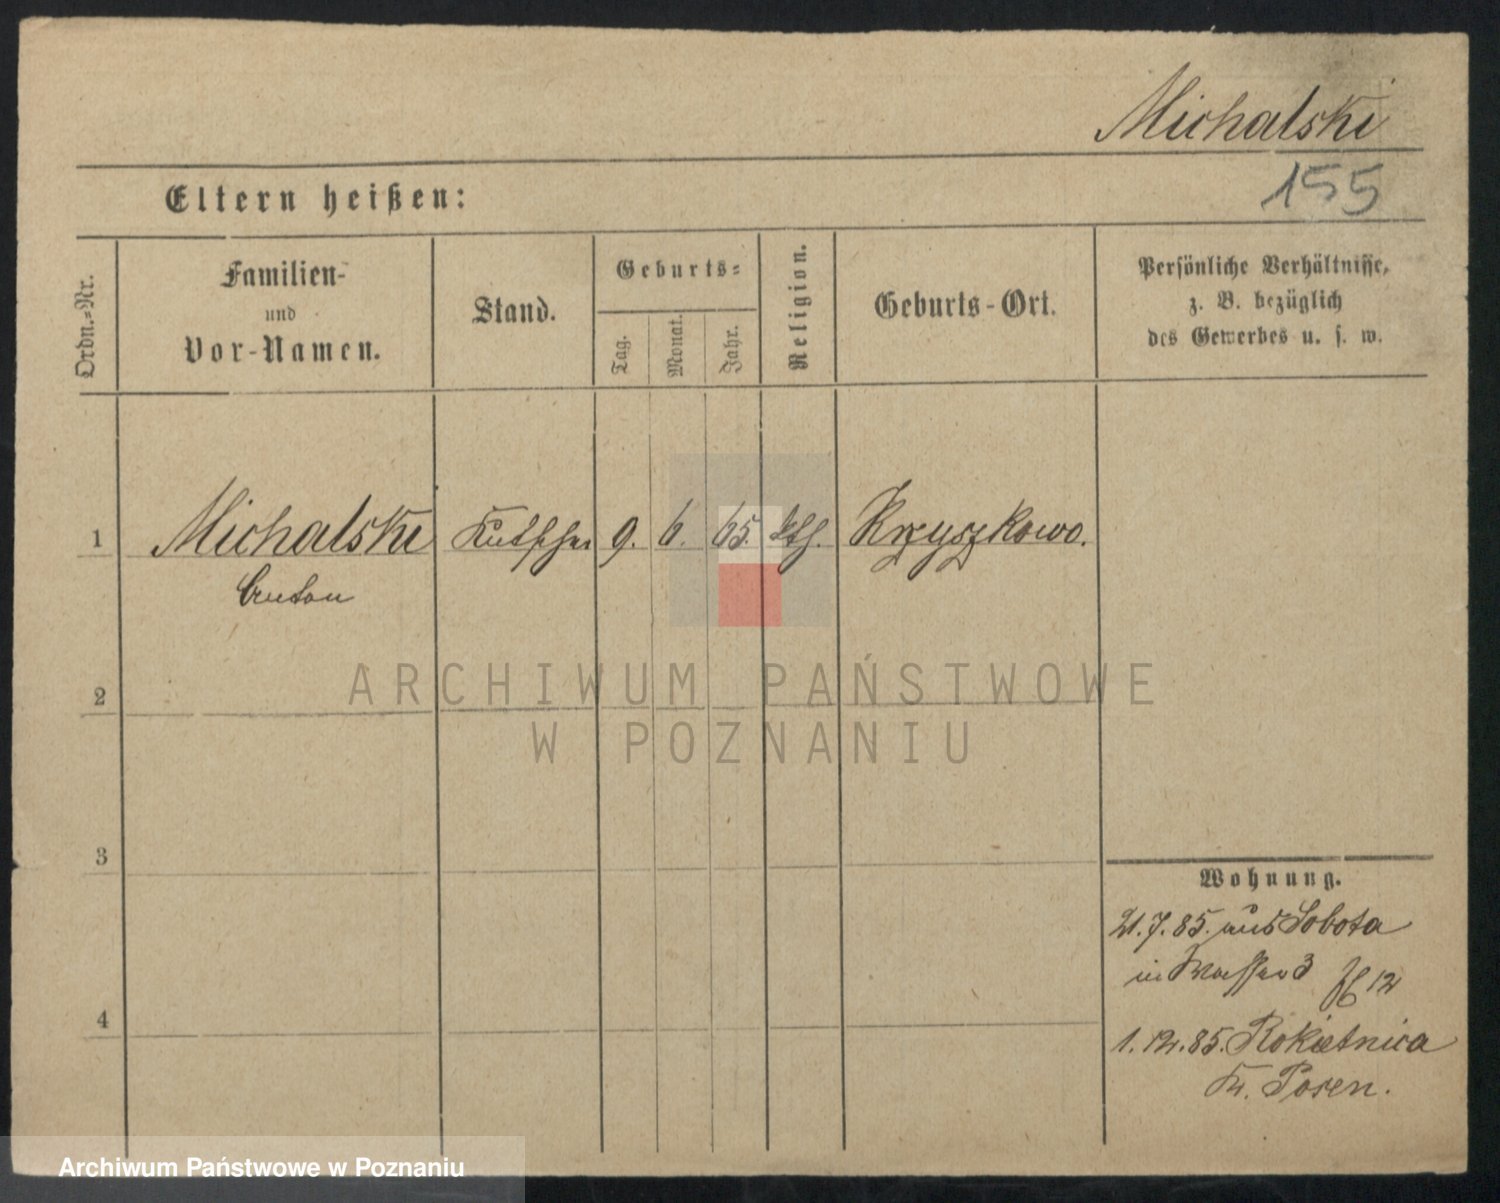 Michalski
155
Eltern heißen:
Ordn.-Nr.
Familien-
und
Vor-Namen.
Stand.
Geburts-
Tag.
Monat.
Jahr.
Religion.
Geburts-Ort.
Persönliche Verhältnisse,
z. B. bezüglich
des Gewerbes u. s. w.
1 Michalski Kutscher 9. 6. 65. kth. Krzyszkowo.
Anton
ARCHIWUM PAŃSTWOWE
W POZNANIU
2
3
4
Wohnung.
21.7.85. aus Sobota
in Wasser 3
12
1.12.85. Rokietnica
Kr. Posen.
Archiwum Państwowe w Poznaniu